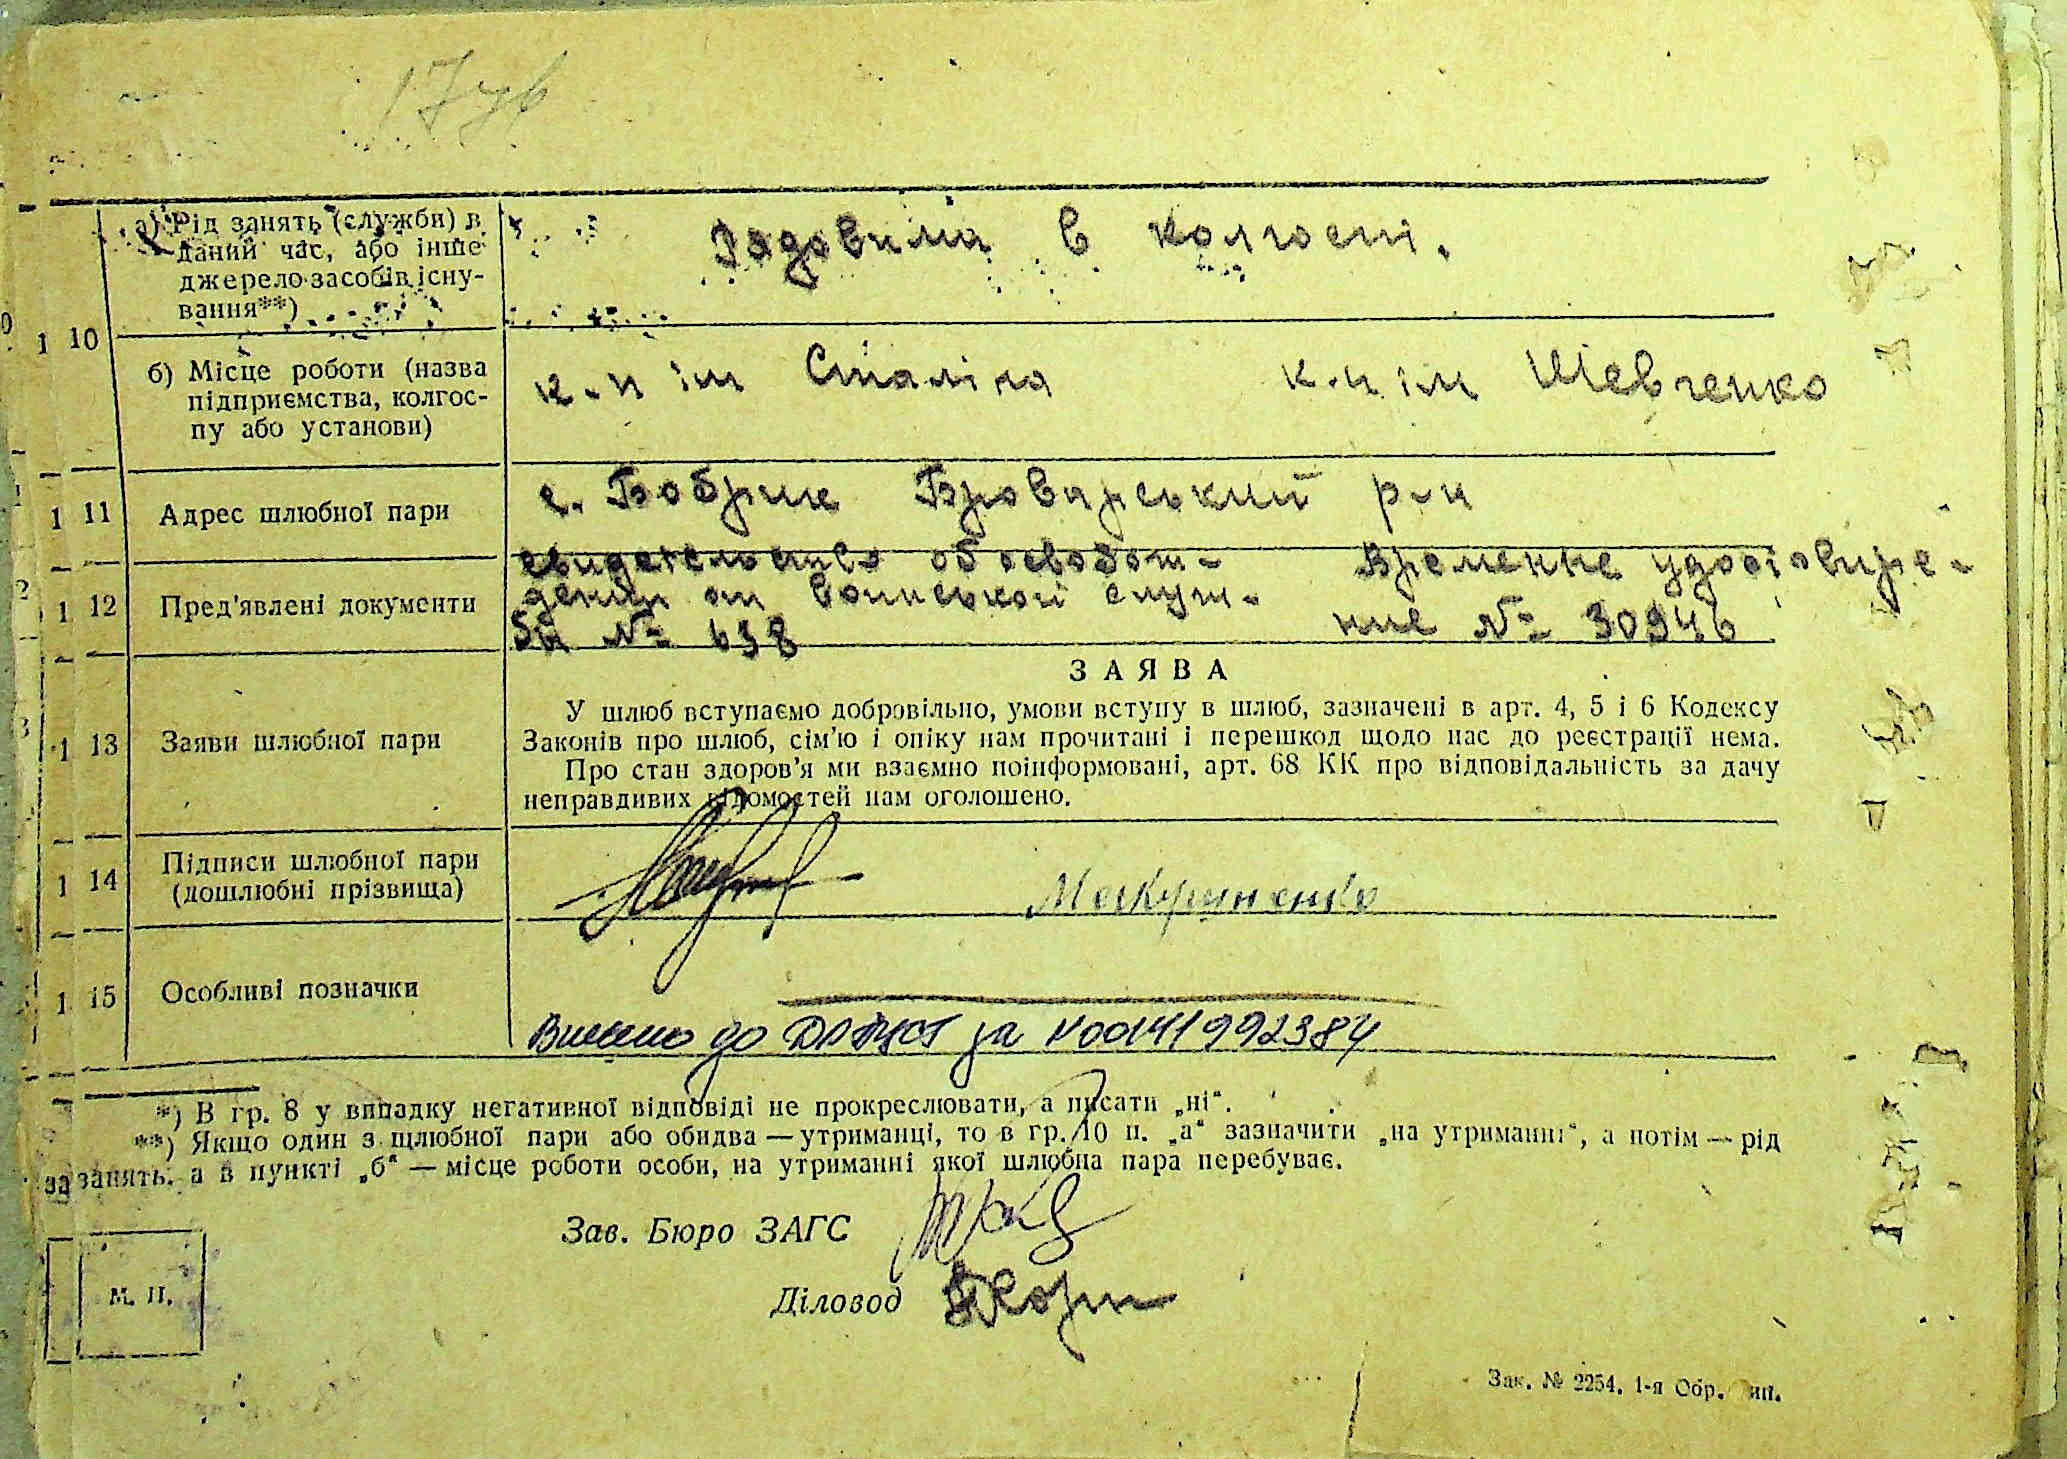 а) Рід занять (служби) в
даний час, або інше
джерело засобів існу-
вання**)
в колгоспі.
1 10
б) Місце роботи (назва
підприємства, колгос-
пу або установи)
к-п ім Сталіна к-п ім Шевченко
1 11 Адрес шлюбної пари
с. Бобрик Броварський р-н
1 12 Пред'явлені документи
свидетельство об освобож-
дении от воинской служ-
бы № 638
Временне удостовире-
ние № 30946
ЗАЯВА
1 13 Заяви шлюбної пари
У шлюб вступаємо добровільно, умови вступу в шлюб, зазначені в арт. 4, 5 і 6 Кодексу
Законів про шлюб, сім'ю і опіку нам прочитані і перешкод щодо нас до реєстрації нема.
Про стан здоров'я ми взаємно поінформовані, арт. 68 КК про відповідальність за дачу
неправдивих відомостей нам оголошено.
1 14 Підписи шлюбної пари
(дошлюбні прізвища)
1 15 Особливі позначки
Внесено до ДРАЦСГ за №00141992384
*) В гр. 8 у випадку негативної відповіді не прокреслювати, а писати „ні“.
**) Якщо один з шлюбної пари або обидва — утриманці, то в гр. 10 п. „а“ зазначити „на утриманні“, а потім — рід
занять, а в пункті „б“ — місце роботи особи, на утриманні якої шлюбна пара перебуває.
Зав. Бюро ЗАГС
Діловод
М. П.
Зак. № 2254. 1-я Обр. тип.